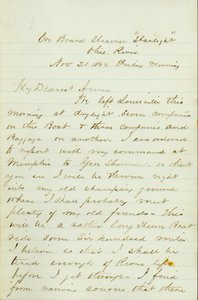 On Board Steamer "Starlight"
Ohio River
Nov 21 1862 Friday Morning
My Dearest Anna
We left Louisville this
morning at daylight Seven companies
on this Boat & three companies and
Baggage on another. I am ordered
to report with my command at
Memphis to Gen Sherman so that
you see I will be thrown right
into my old stamping ground
where I shall probably meet
plenty of my old friends. This
will be a rather long Steam Boat
ride some Six hundred miles
I believe so that I shall be
tired enough of River life
before I get through. I find
from various sources that there